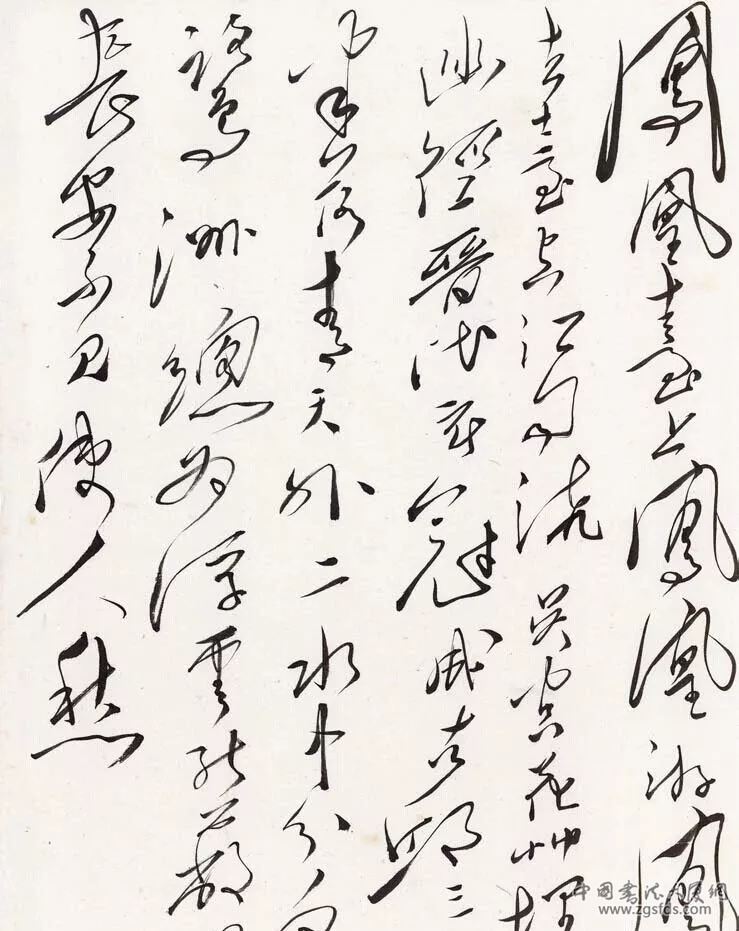 鳳凰臺上鳳凰游鳳
去臺空江自流吳宮花草埋
幽徑晉代衣冠成古邱三
山半落青天外二水中分白
鷺洲總為浮雲能蔽
長安不見使人愁
www.zgsfds.com